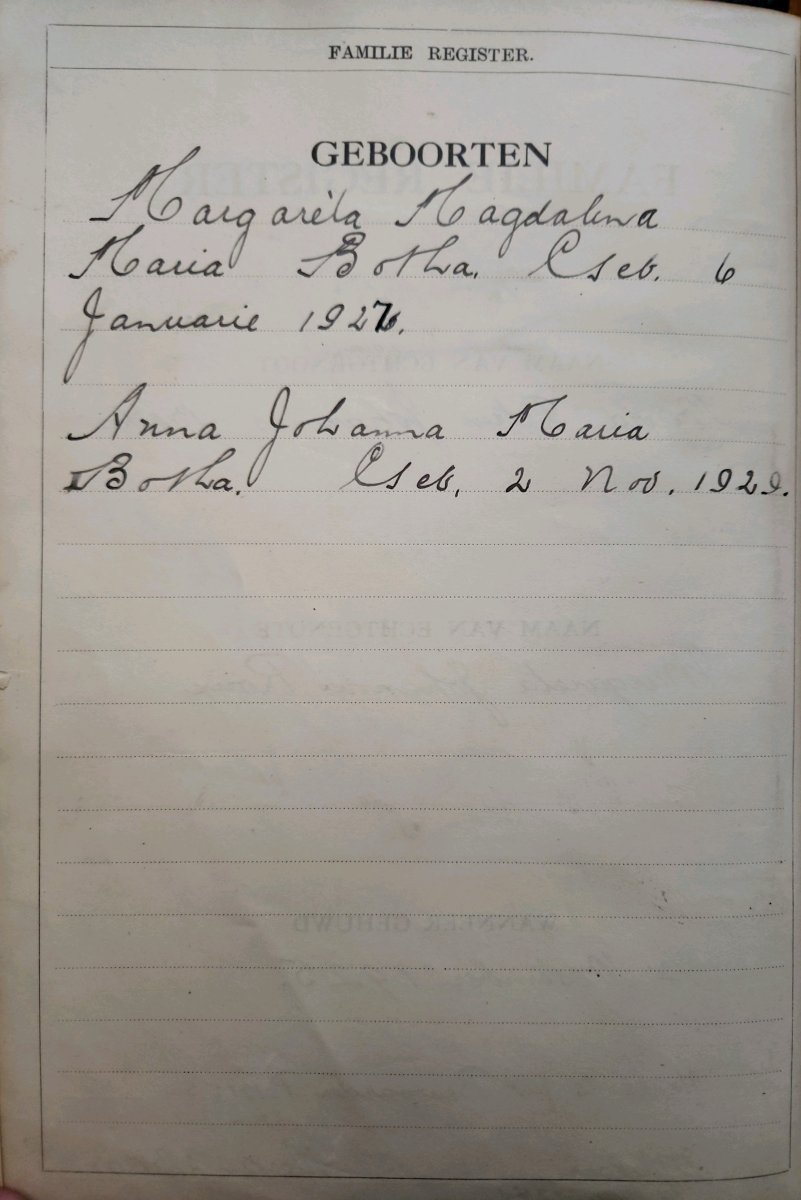 FAMILIE REGISTER.
GEBOORTEN
Margarèta Magdalena
Maria Botha. Geb. 6
Januarie
Anna Johanna Maria
Botha. Geb. 2 Nov. 1929.